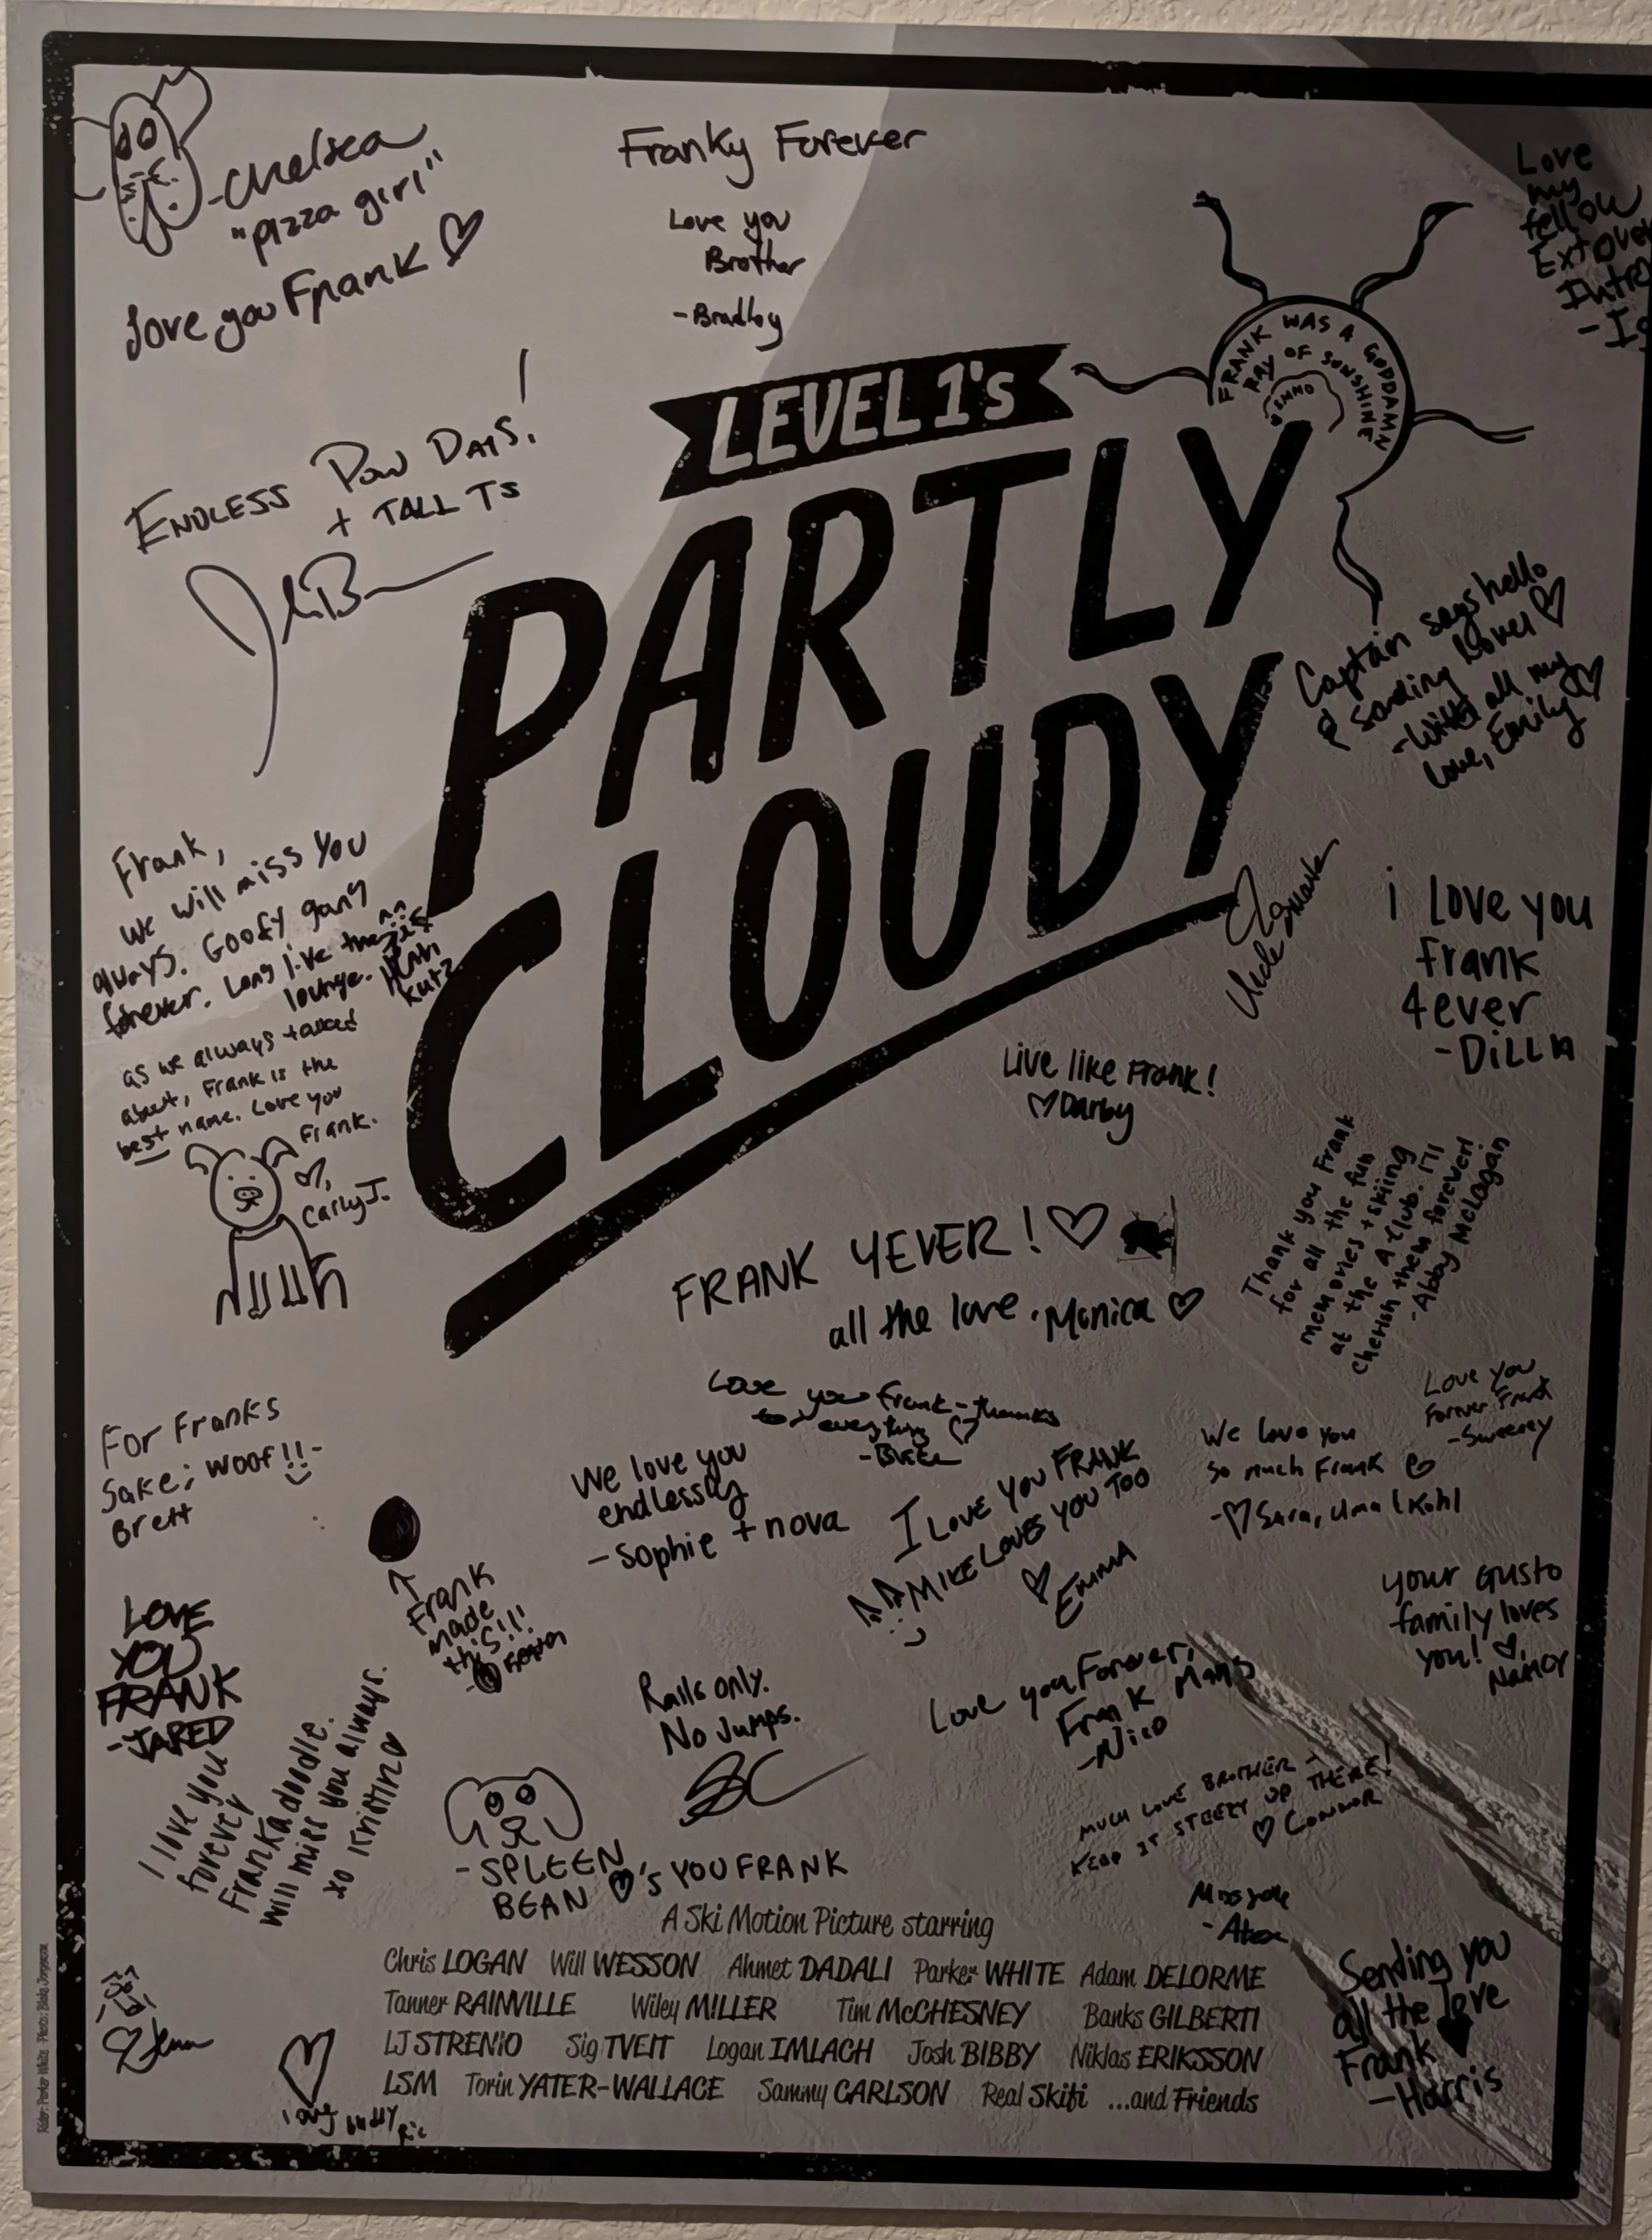 -Chelsea
"pizza girl"
love you Frank
Franky Forever
Love you
Brother
-Bradley
Love
my
fellow
FRANK WAS A GODDAMN
RAY OF SUNSHINE
LEVEL 1's
PARTLY
CLOUDY
ENDLESS POW DAYS!
+ TALL TS
Captain says hello
& sending love!
-With all my
love, Emily
Frank,
we will miss you
always. Goofy gang
forever. Long live the
lounge.
as we always talked
about, Frank is the
best name. Love you
Frank.
Carly J.
i love you
Frank
4ever
-DiLLN
Live like Frank!
Darby
Thank you Frank
for all the fun
memories + skiing
at the A Club. I'll
cherish them forever!
-Abby McLagan
FRANK 4EVER!
all the love, Monica
Love you Frank - thanks
for everything
Love you
Forever Frank
-Sweeney
For Franks
Sake; woof!!-
Brett
We love you
endlessly
-Sophie + nova
I LOVE YOU FRANK
MIKE LOVES YOU TOO
EMMA
We love you
so much Frank
-Sara, Uma & Kohl
Frank
made
this!!!
your Gusto
family loves
you!
Nancy
LOVE
YOU
FRANK
-JARED
Rails only.
No Jumps.
Love you Forever,
Frank Mans
-Nico
I love you
forever
Frankadoodle.
will miss you always.
xo Kristin
MUCH LOVE BROTHER -
KEEP IT STEEZY UP THERE!
CONNOR
-SPLEEN
BEAN 's YOU FRANK
Miss you
-Alex
A Ski Motion Picture starring
Chris LOGAN Will WESSON Ahmet DADALI Parker WHITE Adam DELORME
Tanner RAINVILLE Wiley MILLER Tim McCHESNEY Banks GILBERTI
LJ STRENIO Sig TVEIT Logan IMLACH Josh BIBBY Niklas ERIKSSON
LSM Torin YATER-WALLACE Sammy CARLSON Real Skifi ...and Friends
Sending you
all the love
Frank
-Harris
Rider: Parker White Photo: Blake Jorgenson